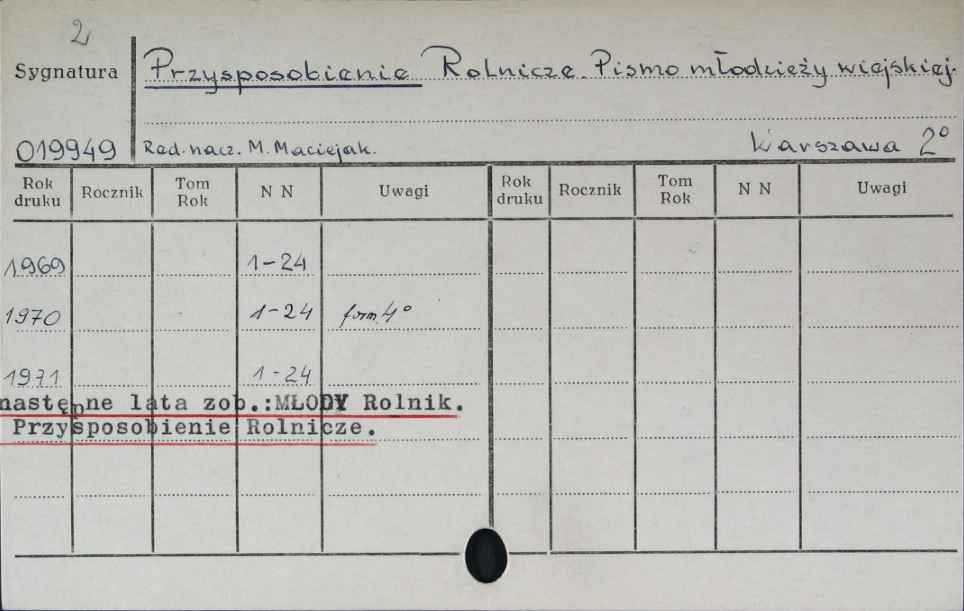 2
Sygnatura Przysposobienie Rolnicze. Pismo młodzieży wiejskiej.
019949 Red. nacz. M. Maciejak. Warszawa 2°
Rok druku Rocznik Tom Rok N N Uwagi Rok druku Rocznik Tom Rok N N Uwagi
1969 1-24
1970 1-24 form. 4°
1971 1-24
następne lata zob.:MŁODY Rolnik.
Przysposobienie Rolnicze.